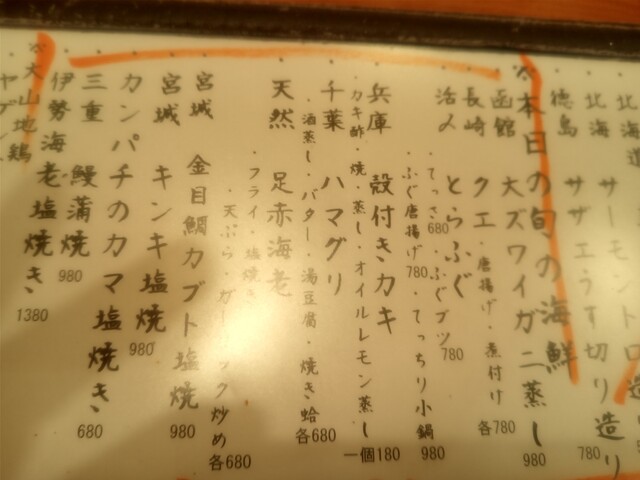 北海道 サーモントロ造り
北海 サザエうす切り造り 780
徳島
※本日の旬の海鮮
函館 大ズワイガニ蒸し 980
長崎 クエ・唐揚げ・煮付け 各780
活〆 とらふぐ
・てっさ680・ふぐブツ 780
・ふぐ唐揚げ780・てっちり小鍋 980
兵庫 殻付きカキ
・カキ酢・焼・蒸し・オイルレモン蒸し 一個180
千葉 ハマグリ
・酒蒸し・バター・湯豆腐・焼き蛤 各680
天然 足赤海老
・フライ・塩焼き
・天ぷら・ガーリック炒め 各680
宮城 金目鯛カブト塩焼 980
宮城 キンキ塩焼 980
カンパチのカマ塩焼き 680
三重 鰻蒲焼 980
伊勢海老塩焼き 1380
※大山地鶏
ヤゲン